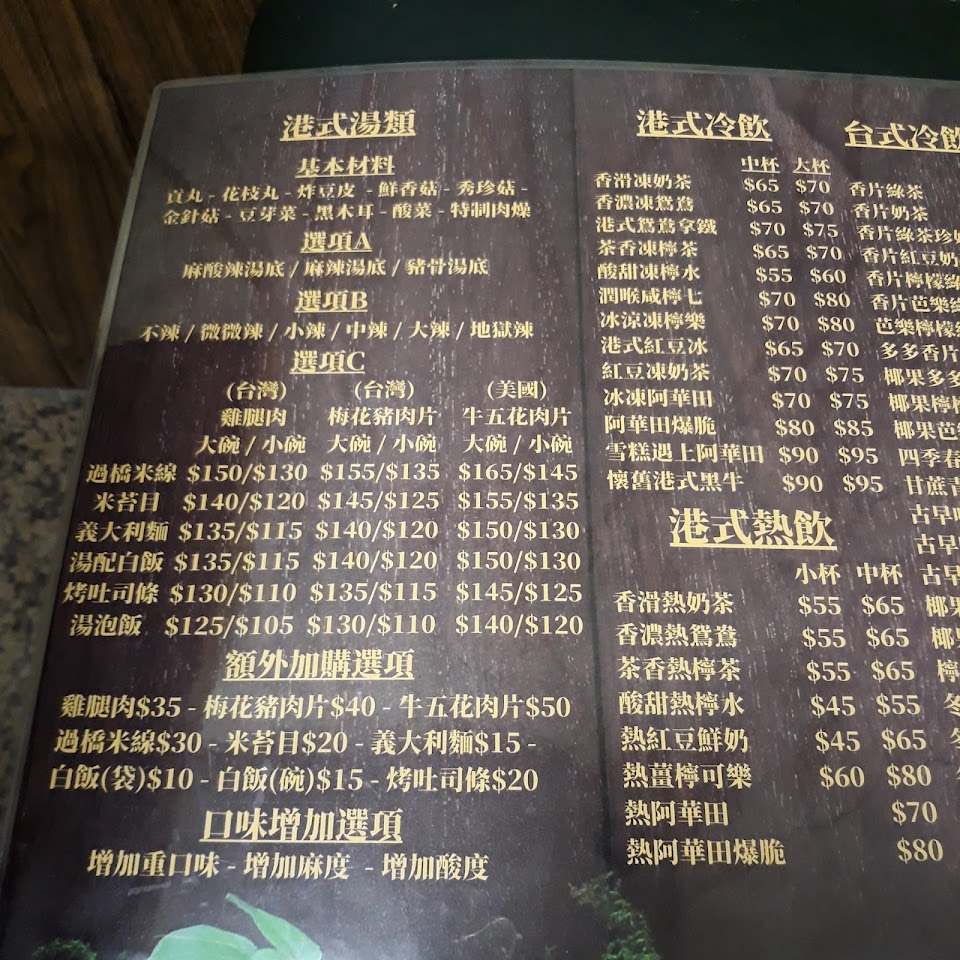 港式湯類
基本材料
貢丸 - 花枝丸 - 炸豆皮 - 鮮香菇 - 秀珍菇 -
金針菇 - 豆芽菜 - 黑木耳 - 酸菜 - 特制肉燥
選項A
麻酸辣湯底 / 麻辣湯底 / 豬骨湯底
選項B
不辣 / 微微辣 / 小辣 / 中辣 / 大辣 / 地獄辣
選項C
(台灣) (台灣) (美國)
雞腿肉 梅花豬肉片 牛五花肉片
大碗 / 小碗 大碗 / 小碗 大碗 / 小碗
過橋米線 $150/$130 $155/$135 $165/$145
米苔目 $140/$120 $145/$125 $155/$135
義大利麵 $135/$115 $140/$120 $150/$130
湯配白飯 $135/$115 $140/$120 $150/$130
烤吐司條 $130/$110 $135/$115 $145/$125
湯泡飯 $125/$105 $130/$110 $140/$120
額外加購選項
雞腿肉$35 - 梅花豬肉片$40 - 牛五花肉片$50
過橋米線$30 - 米苔目$20 - 義大利麵$15 -
白飯(袋)$10 - 白飯(碗)$15 - 烤吐司條$20
口味增加選項
增加重口味 - 增加麻度 - 增加酸度
港式冷飲
中杯 大杯
香滑凍奶茶 $65 $70
香濃凍鴛鴦 $65 $70
港式鴛鴦拿鐵 $70 $75
茶香凍檸茶 $65 $70
酸甜凍檸水 $55 $60
潤喉咸檸七 $70 $80
冰涼凍檸樂 $70 $80
港式紅豆冰 $65 $70
紅豆凍奶茶 $70 $75
冰凍阿華田 $70 $75
阿華田爆脆 $80 $85
雪糕遇上阿華田 $90 $95
懷舊港式黑牛 $90 $95
港式熱飲
小杯 中杯
香滑熱奶茶 $55 $65
香濃熱鴛鴦 $55 $65
茶香熱檸茶 $55 $65
酸甜熱檸水 $45 $55
熱紅豆鮮奶 $45 $65
熱薑檸可樂 $60 $80
熱阿華田 $70
熱阿華田爆脆 $80
台式冷飲
香片綠茶
香片奶茶
香片綠茶珍
香片紅豆奶
香片檸檬綠
香片芭樂綠
芭樂檸檬綠
多多香片
椰果多多
椰果檸檬
椰果芭樂
四季春
甘蔗青
古早味
古早
古早
椰果
椰果
檸
冬